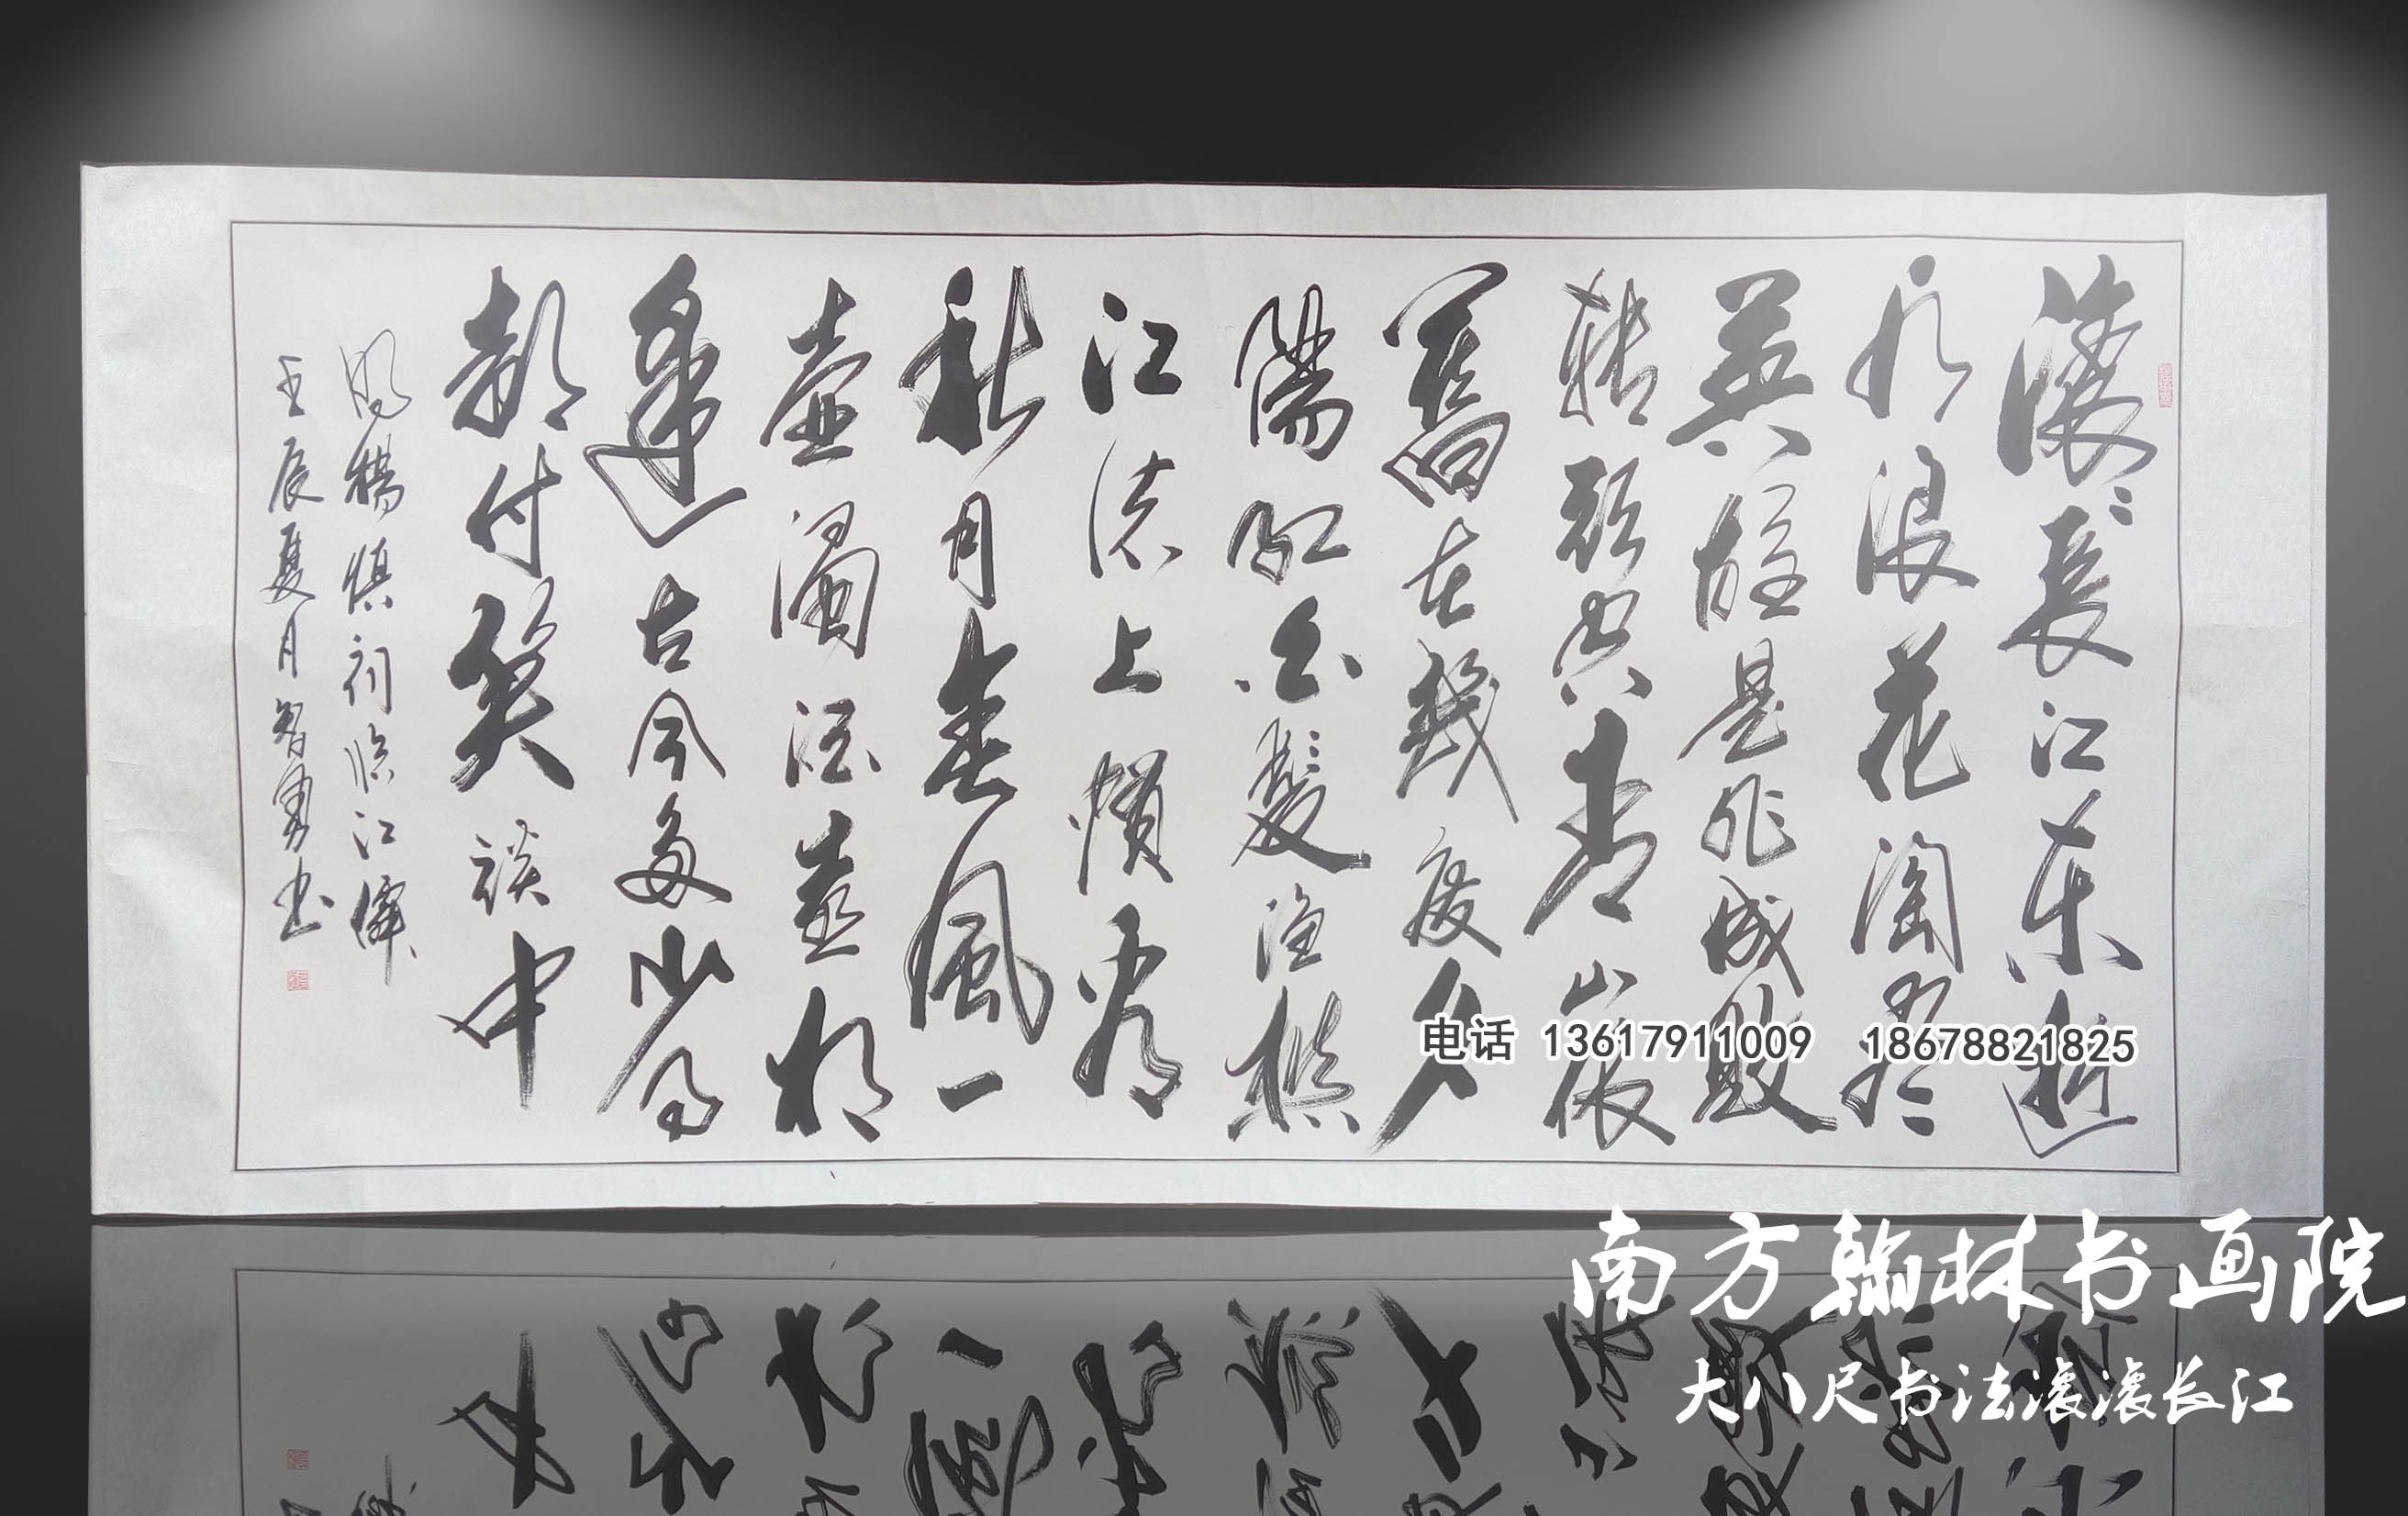 滚滚長江東逝
水浪花淘尽
英雄是非成敗
轉頭空青山依
舊在幾度夕
陽紅白髮漁樵
江渚上慣看
秋月春風一
壺濁酒喜相
逢古今多少事
都付笑談中
明楊慎词临江僊
壬辰夏月智勇书
电话 13617911009 18678821825
南方翰林书画院
大八尺书法滚滚长江